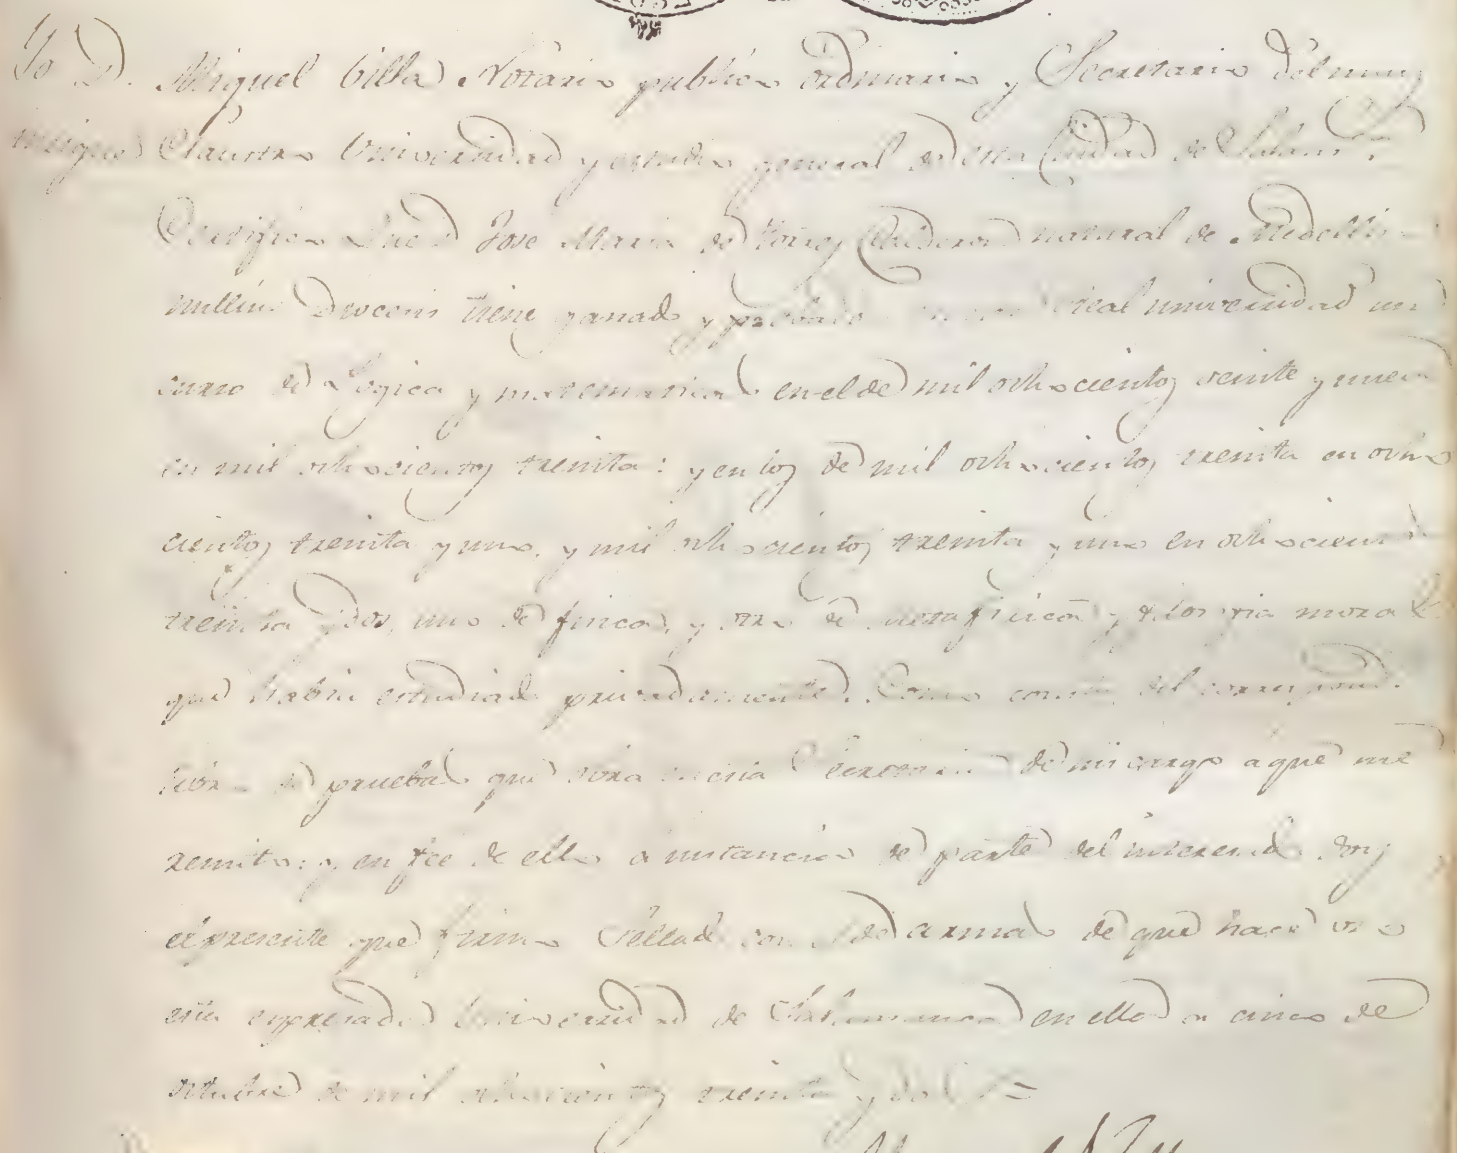 Yo D. Miguel Villa Notario publico ordinario y Secretario del muy
insigne Claustro Universidad y estudio general de esta Ciudad de Salam.ca
Certifico Que D Jose Maria de Torres Calderon natural de Medellin
nullius Diocesis tiene ganado y probado en esta Real universidad un
curso de Logica y matematicas en el de mil ochocientos veinte y nueve
en mil ochocientos treinta: y en los de mil ochocientos treinta en ocho
cientos treinta y uno, y mil ochocientos treinta y uno en ochocientos
treinta y dos, uno de fisica, y otro de metafisica y filosofia moral
que habia estudiado privadamente. Como consta del correspond.
libro de pruebas que obra en esta Secretaria de mi cargo á que me
remito: y en fee de ello a instancia de parte del interesado doy
el presente que firmo Sellado con el de armas de que hace uso
esta expresada Universidad de Salamanca en ella a cinco de
octubre de mil ochocientos treinta y dos =